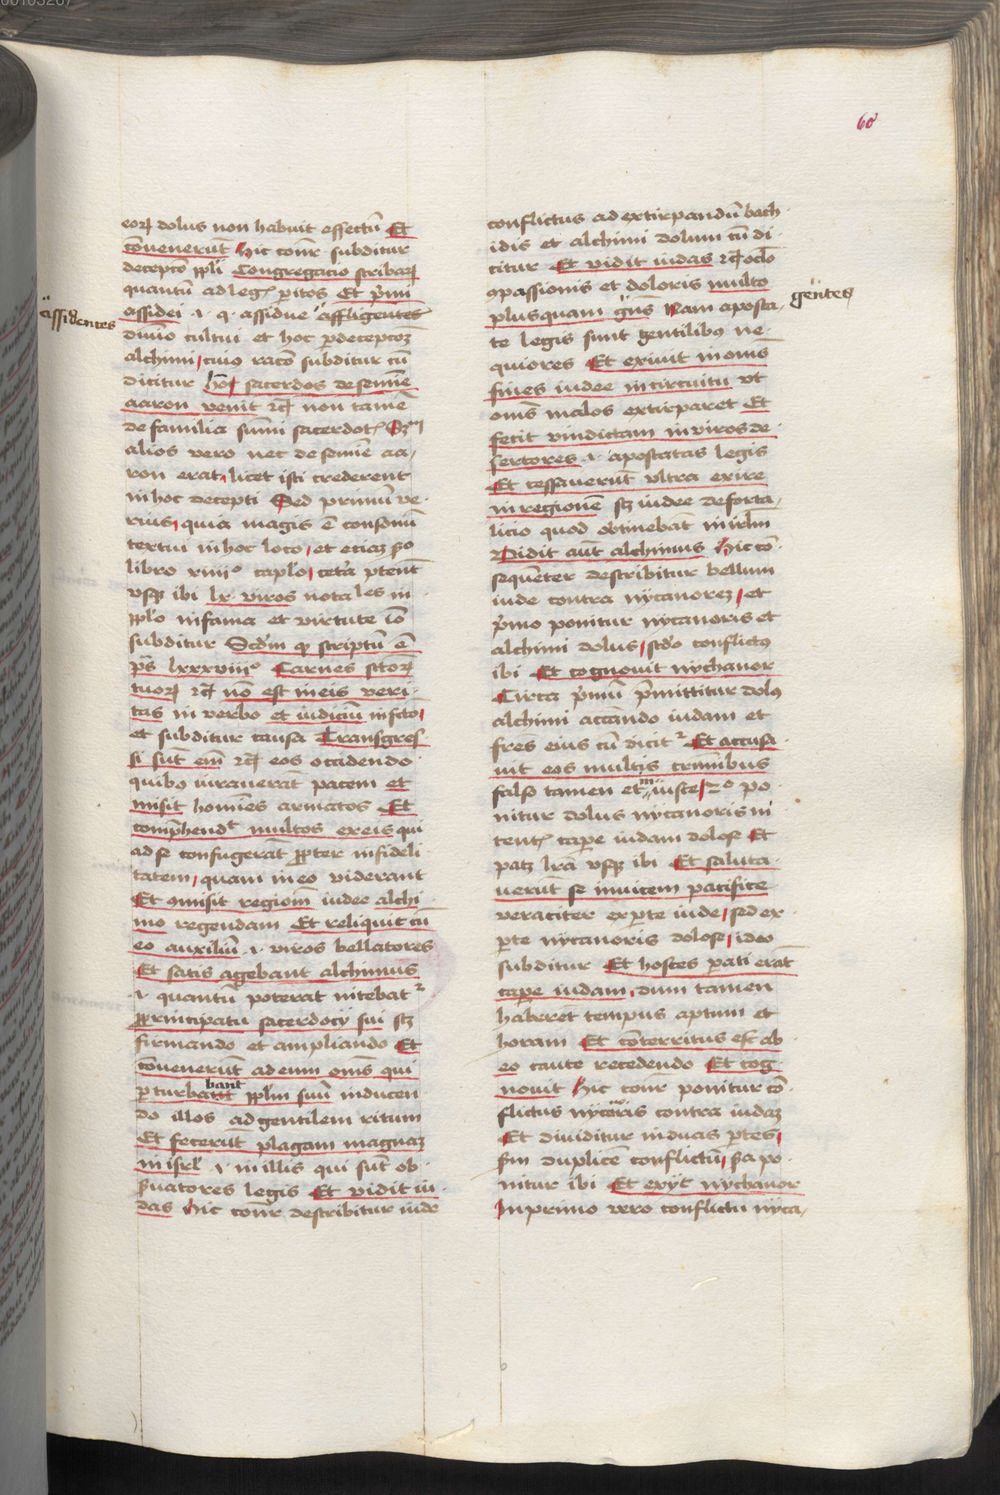 60
eorꝝ dolus non habuit effectū Et
cōuenerūt Hic cōnr̄ subditur
deceptō ppłi Congregacio scribaꝝ
quantū ad legē ꝑitos Et pͥmi
assidei .i. qͥ assidue affligentes
assidentes
diuīo cultui et hoc ꝓ deceptōe
alchimi, cuiꝰ racō subditur cū
dicitur hō sacerdos de semīe
aaron venit ⁊cͣ non tamē
de familia sūmi sacerdotꝭ Sꝫ
alios vero nec de semīe aa,
ron erat, licet isti crederent
in hoc decepti Sed primū ve,
rius, quia magis ē consonū
textui in hoc loco, et eciaꝫ s̄o
libro xiiii° capło, cetͣa ptent
vsqꝫ ibi lx viros nota les in
ppło in fama et virtute iō
subditur Scdm̄ qͩ scriptū ē
ps̄ lxxxviii° Carnes sctōꝝ
tuoꝝ ⁊cͣ nō est in eis veri,
tas in verbo et iudiciū in fcō,
et subditur causa Transgres
si sūt em̄ ⁊cͣ eos occidendo
quibꝰ iurauerāt pacem et
misit homīes armatos Et
comp̄hendͭ multos ex eis qui
ad se confugerāt ꝓpter infideli
tatem, quam in eo viderant
Et ꝯmisit regiom̄ iudee alchi
mo regendam Et reliquit cū
eo auxiliū .i. viros bellatores
Et satis agebant alchimus
.i. quantū poterat nitebatᷣ
ꝓ principatu sacerdocij sui scꝫ
firmando et ampliando Et
cōuenerūt ad eum om̄s qui
ꝑturbabant pplm̄ suū inducen
do illos ad gentilem ritum
Et fecerūt plagam magnaꝫ
in isrł .i. in illis qui sūt ob,
seruatores legis Et vidit iu,
das Hic cōnr̄ describitur iude
conflictus ad extirpandū bach,
idis et alchimi dolum cū di,
citur Et vidit iudas ⁊cͣ oclō
ꝯpassionis et doloris multo
plusquam gn̄s Nam aposta,
gentes
te legis sunt gentilibꝰ ne,
quiores Et exiuit in om̄s
fines iudee in circuitu vt
om̄s malos extirparet Et
fecit vindictam in viros de,
sertores .i. apostatas legis
Et cessauerūt vltra exire
in regionē scꝫ iudee de forta,
licio quod obtinebāt in irlm̄
Vidit aūt alchimus Hic cō,
sequēter describitur bellum
iude contra nycanoreꝫ, et
pͥmo ponitur nycanoris et
alchimi dolus, scd̄o conflictꝰ
ibi Et cognouit nychanor
Circa pͥmū pͥmittitur dolꝰ
alchimi accusando iudam et
fr̄es eius cū dicitᷣ Et accusa
uit eos multis criminibus
falso tamen et iniuste, 2° po,
nitur dolus nycanoris in
tentꝭ cape iudam dolose Et
patꝫ lr̄a vsqꝫ ibi Et saluta,
uerūt se inuicem pacifice
veraciter ex ꝑte iude, sed ex,
ꝑte nycanoris dolose, ideo
subditur Et hostes ꝑati erāt
cape iudam, dum tamen
haberet tempus aptum et
horam Et cōterritus est ab
eo caute recedendo Et cog
nouit Hic cōnr̄ ponitur cō,
flictus nycanoris contra iudaꝫ
Et diuiditur in duas ꝑtes,
s̄m duplicē conflictū, scd̄a po,
nitur ibi Et exijt nychanor
In primo vero conflictu nyca,